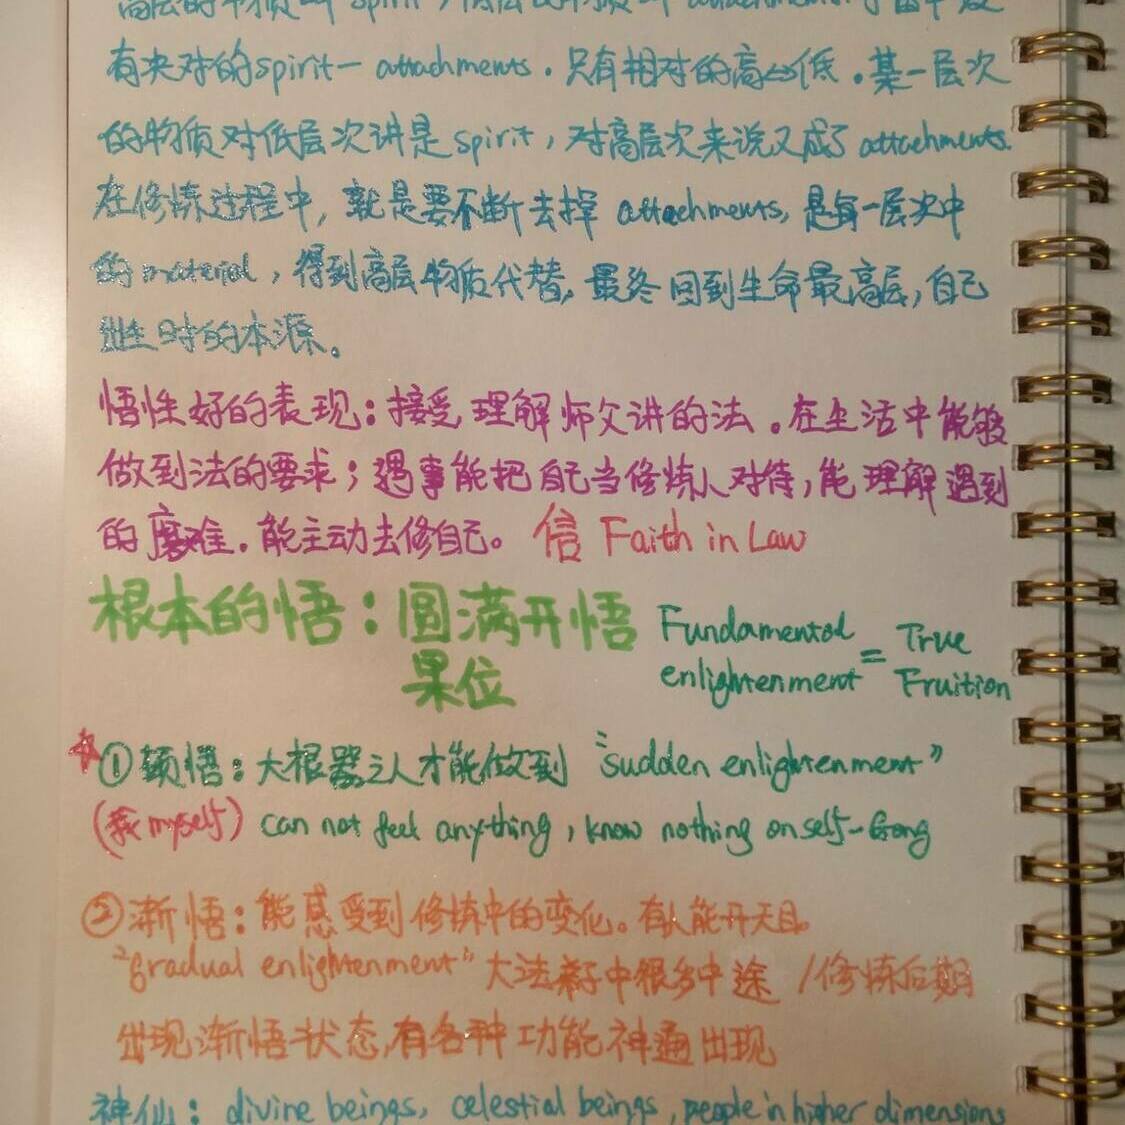 高层的物质叫 spirit，低层的物质叫 attachments.宇宙中没
有决对的spirit— attachments. 只有相对的高与低.某一层次
的物质对低层次讲是 spirit, 对高层次来说又成了 attachments.
在修炼过程中, 就是要不断去掉 attachments, 是每一层次中
的 material, 得到高层物质代替, 最终回到生命最高层, 自己
出生时的本源。
悟性好的表现：接受, 理解师父讲的法。在生活中能够
做到法的要求；遇事能把自己当修炼人对待, 能理解遇到
的磨难. 能主动去修自己。 信 Faith in Law
根本的悟：圆满开悟 Fundamental = True
果位 enlightenment Fruition
☆①顿悟：大根器之人才能做到 "sudden enlightenment"
(我 myself) can not feel anything, know nothing on self-Gong
②渐悟：能感受到修炼中的变化。有人能开天目。
"gradual enlightenment" 大法弟子中很多中途 /修炼后期
出现渐悟状态,有各种功能神通出现
神仙: divine beings, celestial beings, people in higher dimensions